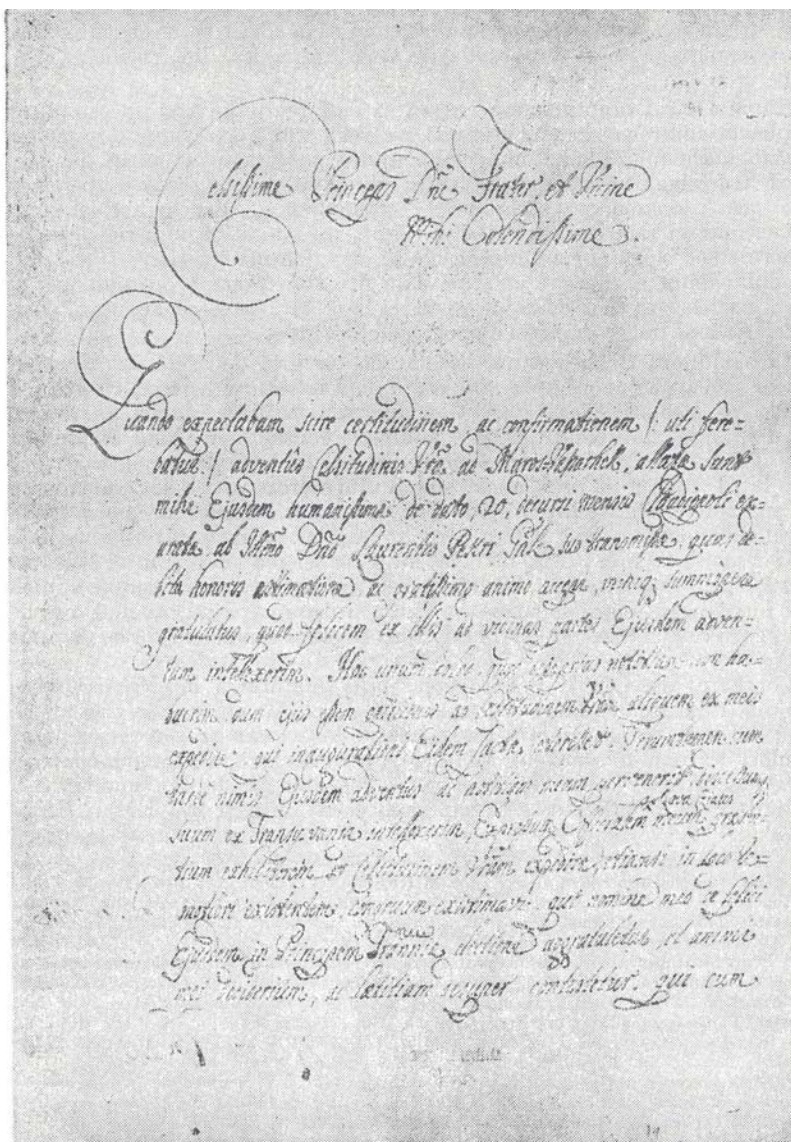 Celsissime Princeps Dne Frater, et Vicine
Mihi Colendissime.
Quando expectabam scire certitudinem, ac confirmationem /: uti fere-
batur :/ adventus Celsitudinis Vrae ad Maros-Vasarhel, allatae sunt
mihi Ejusdem humanissimae de dato, 20, decursi mensis ex-
aratae ab Illmo Dno Laurentio Pekri transmissae, quas de-
bita honoris aestimatione ac gratissimo animo accepi, mihiq summopere
gratulatus, quod felicem ex illis ad vicinas partes Ejusdem adven-
tum intellexerim. Hoc unum doleo, quod notitiam non ha-
buerim, dum ad Celsitudinem Vram aliquem ex meis
expedire, qui inaugurationi Eidem factae Verumtamen cum
tarde nimis Ejusdem adventus ad notitiam meam pervenerit,
suum ex Transylvania intellexerim,
tium ad Celsitudinem Vram expedire, etiamsi in loco re-
motiori existentem, congruum existimavi. qui nomine meo de felici
Ejusdem in Principem Tranniae electione congratuletur, et animi
mei desiderium, ac laetitiam semper contestetur. qui cum